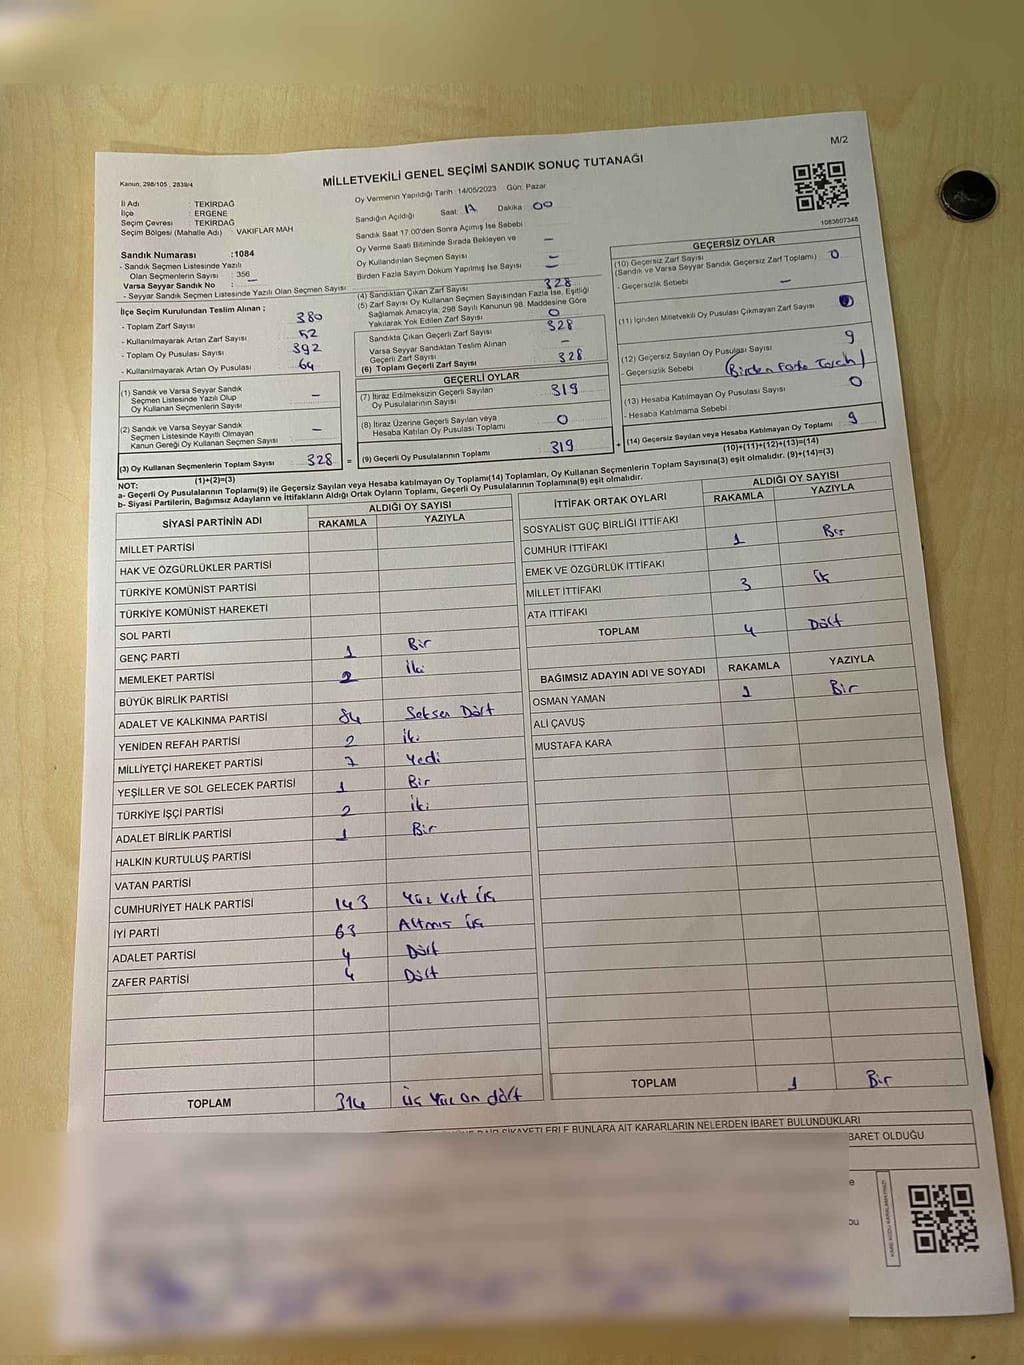 M/2
Kanun; 298/105 , 2839/4
MİLLETVEKİLİ GENEL SEÇİMİ SANDIK SONUÇ TUTANAĞI
Oy Vermenin Yapıldığı Tarih :14/05/2023 Gün: Pazar
1083607348
İl Adı : TEKİRDAĞ
İlçe : ERGENE
Seçim Çevresi : TEKİRDAĞ
Seçim Bölgesi (Mahalle Adı) : VAKIFLAR MAH
Sandık Numarası :1084
- Sandık Seçmen Listesinde Yazılı
Olan Seçmenlerin Sayısı : 356
Varsa Seyyar Sandık No : –
- Seyyar Sandık Seçmen Listesinde Yazılı Olan Seçmen Sayısı
İlçe Seçim Kurulundan Teslim Alınan ;
- Toplam Zarf Sayısı 380
- Kullanılmayarak Artan Zarf Sayısı 52
- Toplam Oy Pusulası Sayısı 392
- Kullanılmayarak Artan Oy Pusulası 64
(1) Sandık ve Varsa Seyyar Sandık
Seçmen Listesinde Yazılı Olup
Oy Kullanan Seçmenlerin Sayısı –
(2) Sandık ve Varsa Seyyar Sandık
Seçmen Listesinde Kayıtlı Olmayan
Kanun Gereği Oy Kullanan Seçmen Sayısı –
(3) Oy Kullanan Seçmenlerin Toplam Sayısı 328 =
(1)+(2)=(3)
Sandığın Açıldığı Saat: 17 Dakika 00
Sandık Saat 17.00'den Sonra Açımış İse Sebebi
Oy Verme Saati Bitiminde Sırada Bekleyen ve –
Oy Kullandırılan Seçmen Sayısı –
Birden Fazla Sayım Döküm Yapılmış İse Sayısı –
(4) Sandıktan Çıkan Zarf Sayısı 328
(5) Zarf Sayısı Oy Kullanan Seçmen Sayısından Fazla İse, Eşitliği
Sağlamak Amacıyla, 298 Sayılı Kanunun 98. Maddesine Göre
Yakılarak Yok Edilen Zarf Sayısı 0
Sandıkta Çıkan Geçerli Zarf Sayısı 328
Varsa Seyyar Sandıktan Teslim Alınan
Geçerli Zarf Sayısı –
(6) Toplam Geçerli Zarf Sayısı 328
GEÇERLİ OYLAR
(7) İtiraz Edilmeksizin Geçerli Sayılan
Oy Pusulalarının Sayısı 319
(8) İtiraz Üzerine Geçerli Sayılan veya
Hesaba Katılan Oy Pusulası Toplamı 0
(9) Geçerli Oy Pusulalarının Toplamı 319 +
GEÇERSİZ OYLAR
(10) Geçersiz Zarf Sayısı
(Sandık ve Varsa Seyyar Sandık Geçersiz Zarf Toplamı) 0
- Geçersizlik Sebebi –
(11) İçinden Milletvekili Oy Pusulası Çıkmayan Zarf Sayısı
(12) Geçersiz Sayılan Oy Pusulası Sayısı 9
- Geçersizlik Sebebi (Birden Fazla Tercih)
(13) Hesaba Katılmayan Oy Pusulası Sayısı 0
- Hesaba Katılmama Sebebi
(14) Geçersiz Sayılan veya Hesaba Katılmayan Oy Toplamı 9
(10)+(11)+(12)+(13)=(14)
NOT:
a- Geçerli Oy Pusulalarının Toplamı(9) ile Geçersiz Sayılan veya Hesaba katılmayan Oy Toplamı(14) Toplamları, Oy Kullanan Seçmenlerin Toplam Sayısına(3) eşit olmalıdır. (9)+(14)=(3)
b- Siyasi Partilerin, Bağımsız Adayların ve İttifakların Aldığı Ortak Oyların Toplamı, Geçerli Oy Pusulalarının Toplamına(9) eşit olmalıdır.
SİYASİ PARTİNİN ADI ALDIĞI OY SAYISI
RAKAMLA YAZIYLA
MİLLET PARTİSİ
HAK VE ÖZGÜRLÜKLER PARTİSİ
TÜRKİYE KOMÜNİST PARTİSİ
TÜRKİYE KOMÜNİST HAREKETİ
SOL PARTİ
GENÇ PARTİ 1 Bir
MEMLEKET PARTİSİ 2 İki
BÜYÜK BİRLİK PARTİSİ
ADALET VE KALKINMA PARTİSİ 84 Seksen Dört
YENİDEN REFAH PARTİSİ 2 İki
MİLLİYETÇİ HAREKET PARTİSİ 7 Yedi
YEŞİLLER VE SOL GELECEK PARTİSİ 1 Bir
TÜRKİYE İŞÇİ PARTİSİ 2 İki
ADALET BİRLİK PARTİSİ 1 Bir
HALKIN KURTULUŞ PARTİSİ
VATAN PARTİSİ
CUMHURİYET HALK PARTİSİ 143 Yüz Kırk Üç
İYİ PARTİ 63 Altmış Üç
ADALET PARTİSİ 4 Dört
ZAFER PARTİSİ 4 Dört
TOPLAM 314 Üç Yüz On dört
İTTİFAK ORTAK OYLARI ALDIĞI OY SAYISI
RAKAMLA YAZIYLA
SOSYALİST GÜÇ BİRLİĞİ İTTİFAKI
CUMHUR İTTİFAKI 1 Bir
EMEK VE ÖZGÜRLÜK İTTİFAKI
MİLLET İTTİFAKI 3
ATA İTTİFAKI
TOPLAM 4 Dört
BAĞIMSIZ ADAYIN ADI VE SOYADI RAKAMLA YAZIYLA
OSMAN YAMAN 1 Bir
ALİ ÇAVUŞ
MUSTAFA KARA
TOPLAM 1 Bir
BUNLARA AİT KARARLARIN NELERDEN İBARET BULUNDUKLARI
BARET OLDUĞU